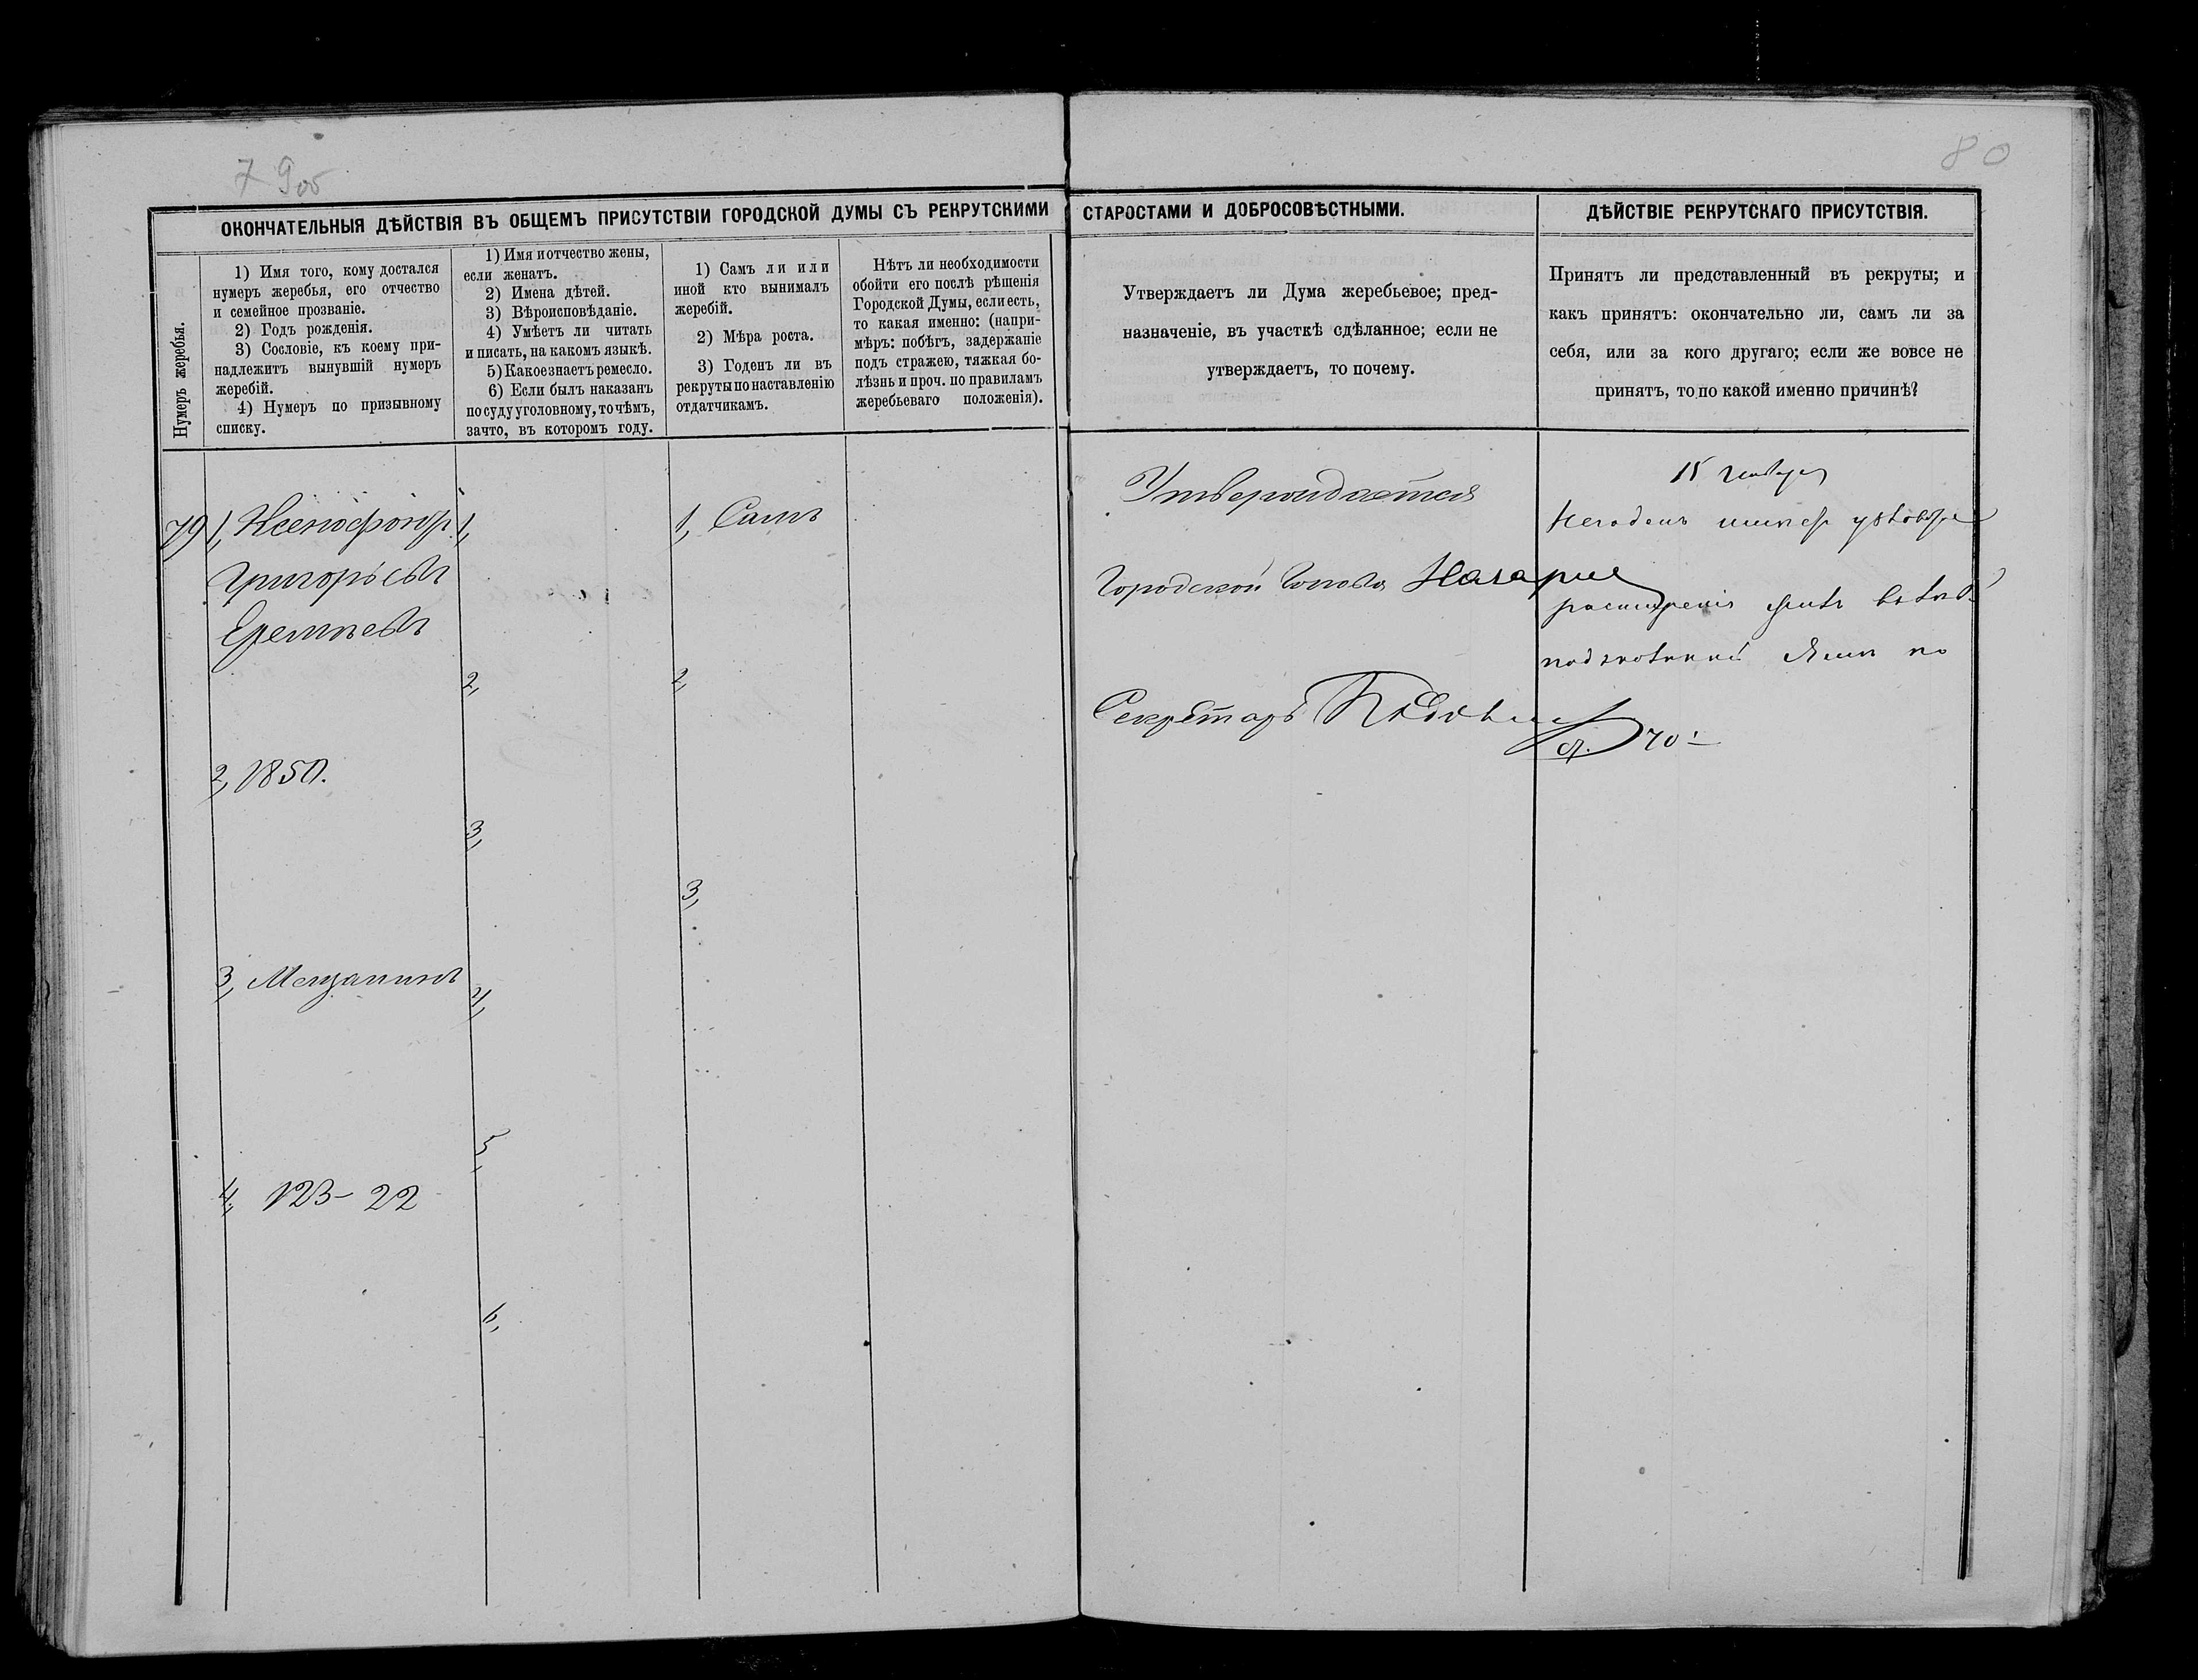 79об
80
ОКОНЧАТЕЛЬНЫЯ ДѢЙСТВІЯ ВЪ ОБЩЕМЪ ПРИСУТСТВІИ ГОРОДСКОЙ ДУМЫ СЪ РЕКРУТСКИМИ СТАРОСТАМИ И ДОБРОСОВѢСТНЫМИ.
ДѢЙСТВІЕ РЕКРУТСКАГО ПРИСУТСТВІЯ.
Нумеръ жеребья.
1) Имя того, кому достался
нумеръ жеребья, его отчество
и семейное прозваніе.
2) Годъ рожденія.
3) Сословіе, къ коему при-
надлежитъ вынувшій нумеръ
жеребій.
4) Нумеръ по призывному
списку.
1) Имя и отчество жены,
если женатъ.
2) Имена дѣтей.
3) Вѣроисповѣданіе.
4) Умѣетъ ли читать
и писать, на какомъ языкѣ.
5) Какое знаетъ ремесло.
6) Если былъ наказанъ
по суду уголовному, то чѣмъ,
за что, въ которомъ году.
1) Самъ ли или
иной кто вынималъ
жеребій.
2) Мѣра роста.
3) Годенъ ли въ
рекруты по наставленію
отдатчикамъ.
Нѣтъ ли необходимости
обойти его послѣ рѣшенія
Городской Думы, если есть,
то какая именно: (напри-
мѣръ: побѣгъ, задержаніе
подъ стражею, тяжкая бо-
лѣзнь и проч. по правиламъ
жеребьеваго положенія).
Утверждаетъ ли Дума жеребьевое; пред-
назначеніе, въ участкѣ сдѣланное; если не
утверждаетъ, то почему.
Принятъ ли представленный въ рекруты; и
какъ принятъ: окончательно ли, самъ ли за
себя, или за кого другаго; если же вовсе не
принятъ, то по какой именно причинѣ?
79
1, Ксенофонтъ
Григорьевъ
Еремѣевъ
2, 1850.
3, Мещанинъ
4, 123-22
1,
2,
3,
4,
5,
6,
1, Самъ
2,
3,
Утверждается
Городской Голова
Секретарь
15 Января
Негоденъ
расширенія венъ
по
ст. 70